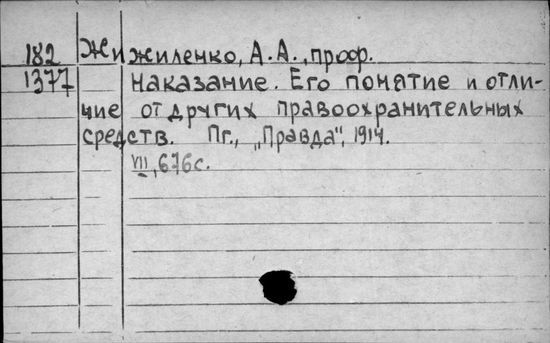 182 Жижиленко, А.А., проф.
1377 Наказание. Его понятие и отли-
чие от других правоохранительных
средств. Пг., „Правда", 1914.
VII, 676с.